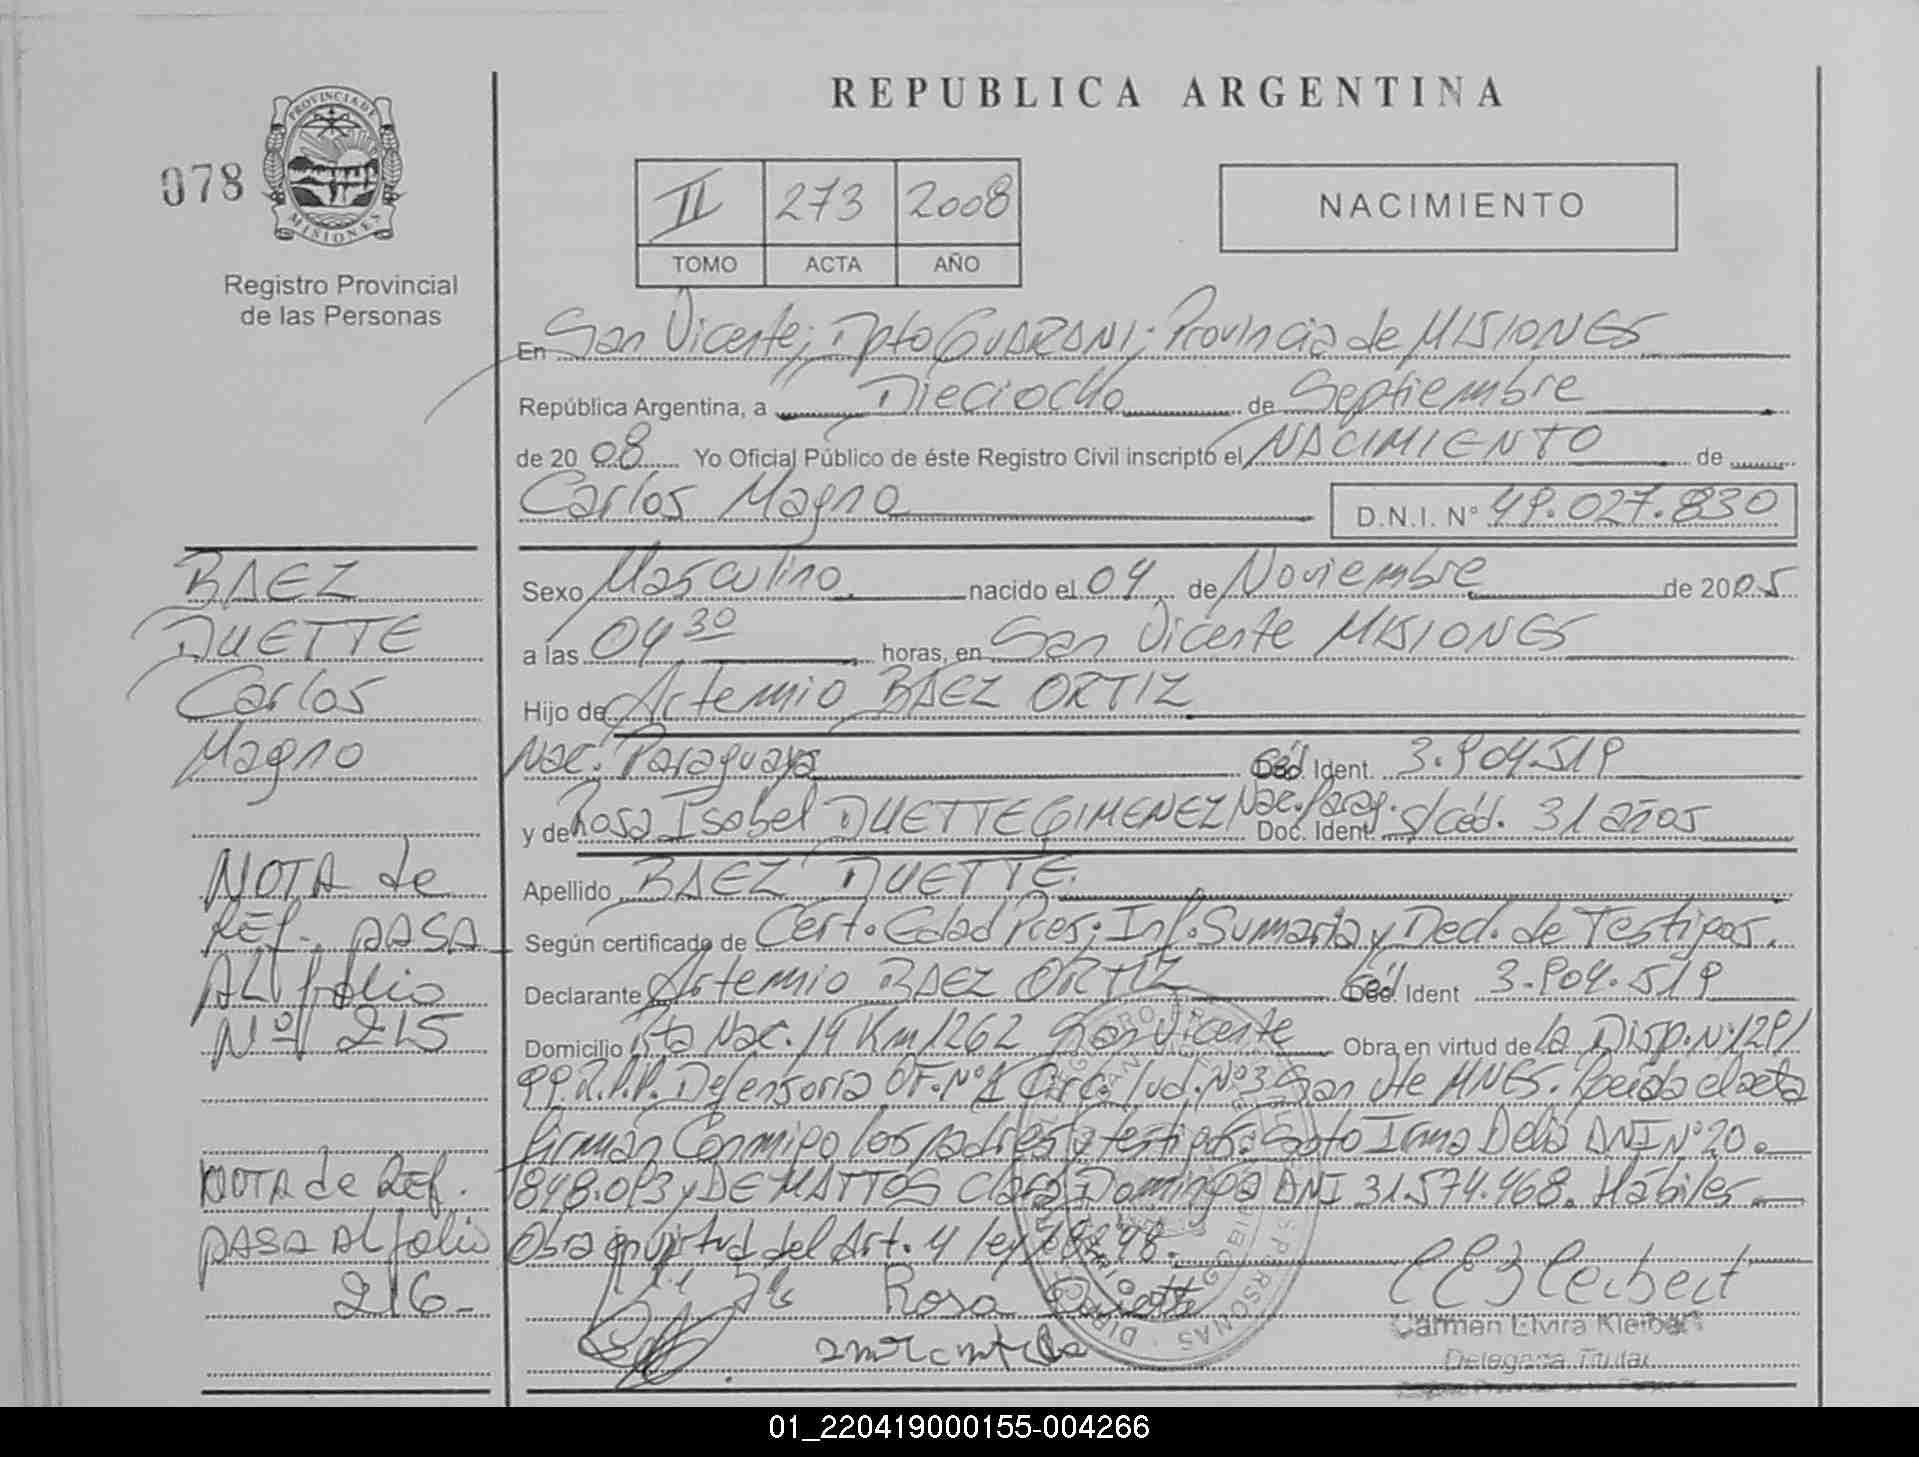 REPUBLICA ARGENTINA
078
PROVINCIA DE
MISIONES
Registro Provincial
de las Personas
II 273 2008
TOMO ACTA AÑO
NACIMIENTO
En San Vicente; Dpto GUARANI; Provincia de MISIONES
República Argentina, a Dieciocho de Septiembre
de 2008 Yo Oficial Público de éste Registro Civil inscripto el NACIMIENTO de
Carlos Magno D.N.I. N° 49.027.830
BAEZ
DUETTE
Carlos
Magno
NOTA de
REf. PASA
AL folio
Nº 215
NOTA de REf.
PASA AL folio
216-
Sexo Masculino nacido el 04 de Noviembre de 2005
a las 04 30 horas, en San Vicente MISIONES
Hijo de Artemio BAEZ ORTIZ
Nac. Paraguaya Céd. Ident. 3.904.519
y de Rosa Isabel DUETTE GIMENEZ Nac. Parag. Doc. Ident. s/céd. 31 años
Apellido BAEZ DUETTE.
Según certificado de Cert. Edad Pres; Inf. Sumaria y Decl. de Testigos.
Declarante Artemio BAEZ ORTIZ Céd. Ident 3.904.519
Domicilio Rta Nac. 14 Km 1262 San Vicente Obra en virtud de La Disp. N° 129/
99.R.P.P. Defensoria Of. N°1 Circ. Jud. N°3 San Vte MNES. Leida el acta
firman Conmigo los padres y testigos: Soto Irma Delia DNI N° 20.
848.093 y DE MATTOS Clara Dominga DNI 31.574.468. Hábiles.
Obra en virtud del Art. 4 ley 18248.
Rosa Duette
Carmen Elvira Kleibert
Delegada Titular
01_220419000155-004266